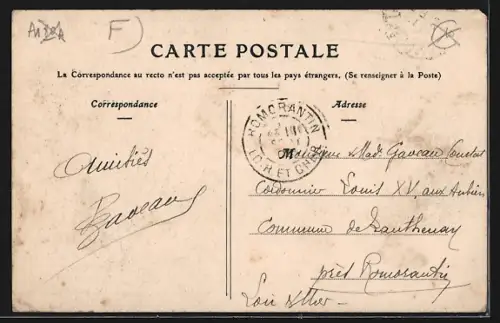 F)
CARTE POSTALE
La Correspondance au recto n'est pas acceptée par tous les pays étrangers, (Se renseigner à la Poste)
Correspondance
Adresse
ROMORANTIN
LOIR ET CHER
Amitiés
Gaveau
M onsieur Mad. Gaveau Constant
Cordonnier Louis XV, aux
Commune de Lanthenay
près Romorantin
Loir & Cher